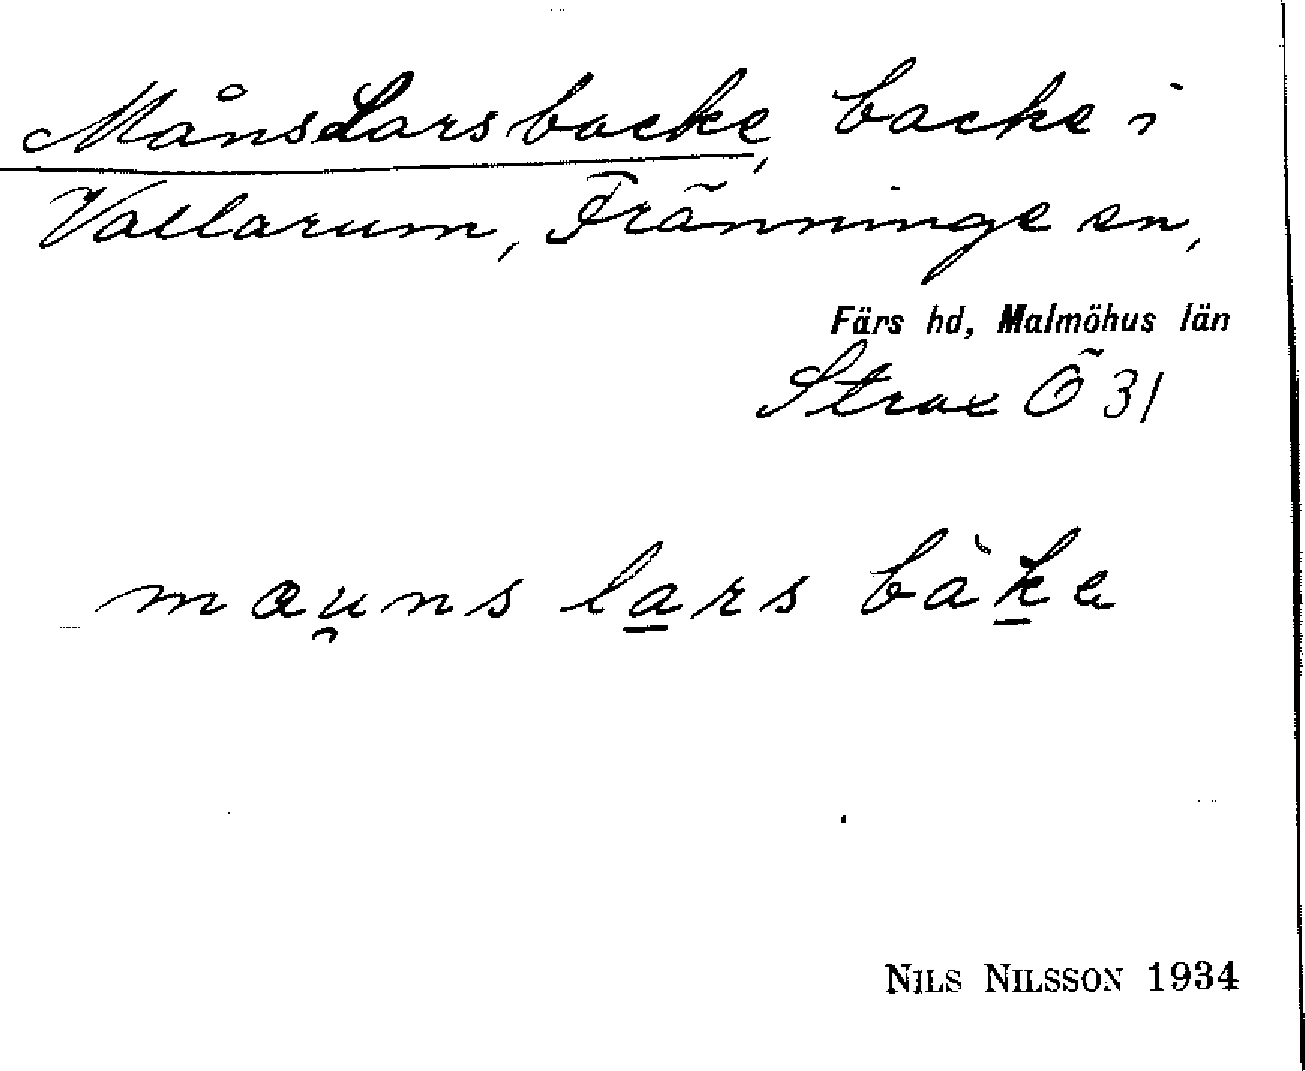 MånsLarsbacke, backe i
Vallarum, Fränninge sn,
Färs hd, Malmöhus län
Strax Ö 31
mau̯ns la̱rs bàḵe
NILS NILSSON 1934